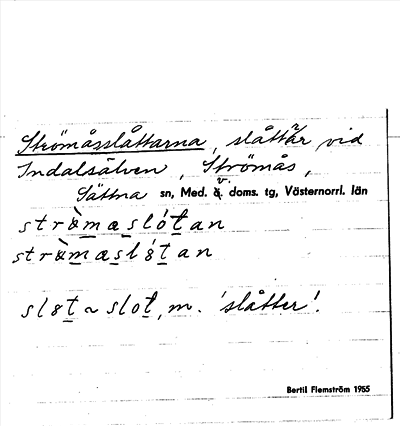 Strömåsslåttarna, slåttar vid
Indalsälven, Strömås,
Sättna sn, Med. v. doms. tg, Västernorrl. län
str&̀maslótan
str&̀maslȣ́tan
slȣt ~ slot, m. 'slåtter'.
Bertil Flemström 1955